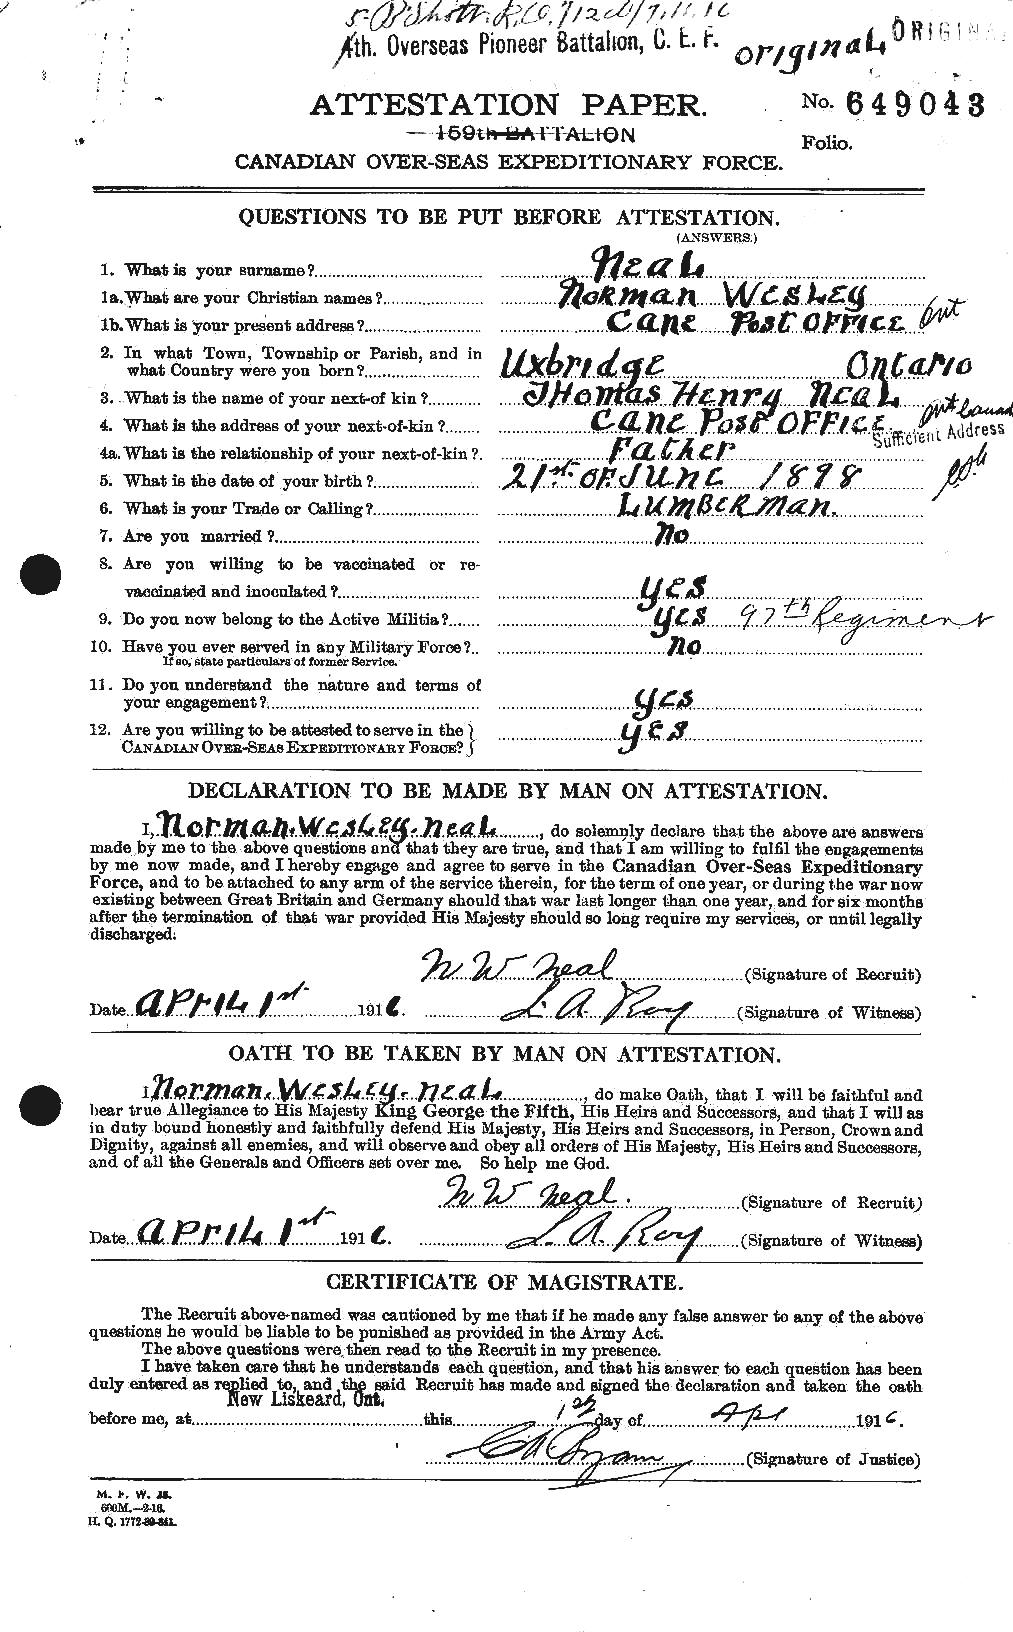 4th. Overseas Pioneer Battalion, C. E. F.
ORIGINAL ORIGINAL
ATTESTATION PAPER. No. 649043
159th BATTALION
Folio.
CANADIAN OVER-SEAS EXPEDITIONARY FORCE.
QUESTIONS TO BE PUT BEFORE ATTESTATION.
(ANSWERS.)
1. What is your surname? Neal
1a. What are your Christian names? Norman Wesley
1b. What is your present address? Cane Post Office Ont
2. In what Town, Township or Parish, and in
what Country were you born? Uxbridge Ontario
3. What is the name of your next-of kin? Thomas Henry Neal
4. What is the address of your next-of-kin? Cane Post Office Ont Canada
Sufficient Address
4a. What is the relationship of your next-of-kin? Father
5. What is the date of your birth? 21st of June 1898
6. What is your Trade or Calling? Lumberman.
7. Are you married? No
8. Are you willing to be vaccinated or re-
vaccinated and inoculated? Yes
9. Do you now belong to the Active Militia? Yes 97th Regiment
10. Have you ever served in any Military Force? No
If so, state particulars of former Service.
11. Do you understand the nature and terms of
your engagement? Yes
12. Are you willing to be attested to serve in the
CANADIAN OVER-SEAS EXPEDITIONARY FORCE? Yes
DECLARATION TO BE MADE BY MAN ON ATTESTATION.
I, Norman Wesley Neal, do solemnly declare that the above are answers
made by me to the above questions and that they are true, and that I am willing to fulfil the engagements
by me now made, and I hereby engage and agree to serve in the Canadian Over-Seas Expeditionary
Force, and to be attached to any arm of the service therein, for the term of one year, or during the war now
existing between Great Britain and Germany should that war last longer than one year, and for six months
after the termination of that war provided His Majesty should so long require my services, or until legally
discharged.
N W Neal (Signature of Recruit)
Date April 1st 1916. L. A. Roy (Signature of Witness)
OATH TO BE TAKEN BY MAN ON ATTESTATION.
I Norman Wesley Neal, do make Oath, that I will be faithful and
bear true Allegiance to His Majesty King George the Fifth, His Heirs and Successors, and that I will as
in duty bound honestly and faithfully defend His Majesty, His Heirs and Successors, in Person, Crown and
Dignity, against all enemies, and will observe and obey all orders of His Majesty, His Heirs and Successors,
and of all the Generals and Officers set over me. So help me God.
N W Neal. (Signature of Recruit)
Date April 1st 1916. L. A. Roy (Signature of Witness)
CERTIFICATE OF MAGISTRATE.
The Recruit above-named was cautioned by me that if he made any false answer to any of the above
questions he would be liable to be punished as provided in the Army Act.
The above questions were then read to the Recruit in my presence.
I have taken care that he understands each question, and that his answer to each question has been
duly entered as replied to, and the said Recruit has made and signed the declaration and taken the oath
before me, at New Liskeard, Ont. this 1st day of Apl 1916.
(Signature of Justice)
M. F. W.
600M.—2-16.
H. Q. 1772-39-841.